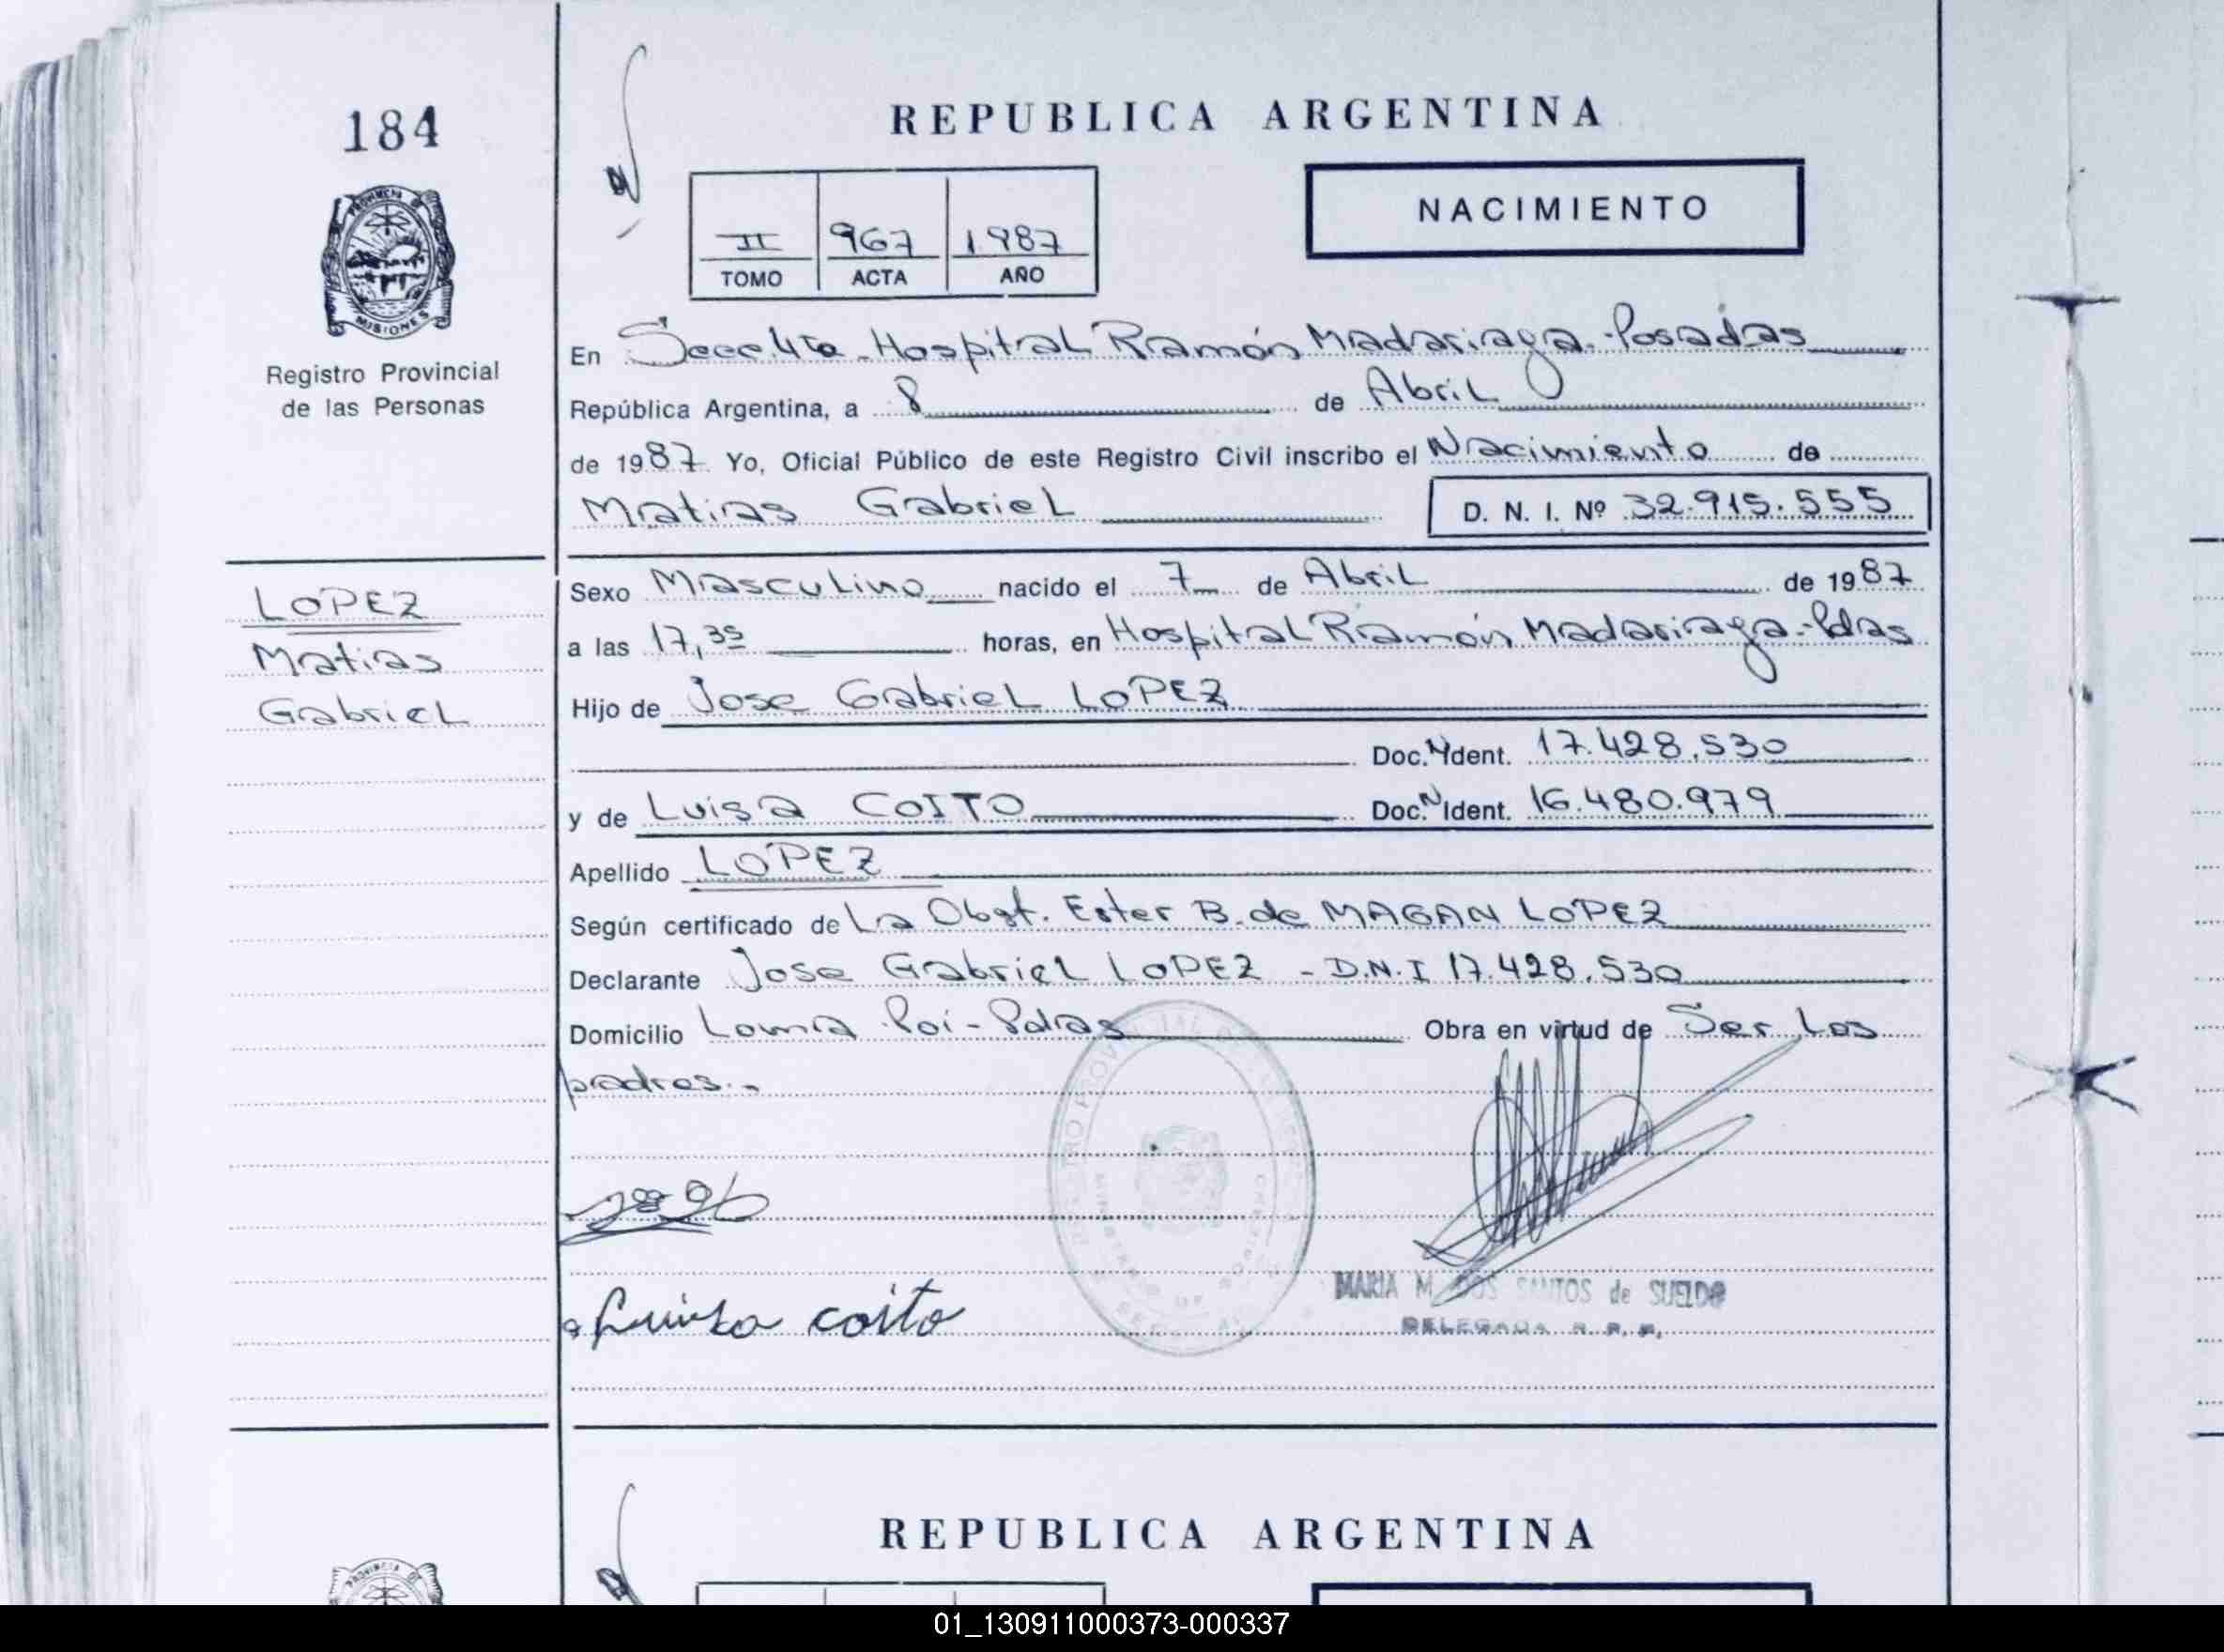 184
PROVINCIA DE
MISIONES
Registro Provincial
de las Personas
REPUBLICA ARGENTINA
II 967 1987
TOMO ACTA AÑO
NACIMIENTO
En Secc. 4ta. Hospital Ramón Madariaga.-Posadas
República Argentina, a 8 de Abril
de 1987 Yo, Oficial Público de este Registro Civil inscribo el Nacimiento de
Matias Gabriel D. N. I. Nº 32.915.555
LOPEZ
Matias
Gabriel
Sexo Masculino nacido el 7 de Abril de 1987
a las 17,35 horas, en Hospital Ramón Madariaga-Pdas
Hijo de Jose Gabriel LOPEZ
Doc. N Ident. 17.428.530
y de Luisa COITO Doc. N Ident. 16.480.979
Apellido LOPEZ
Según certificado de La Obst. Ester B. de MAGAN LOPEZ
Declarante Jose Gabriel LOPEZ - D.N.I 17.428.530
Domicilio Loma Poi-Pdas Obra en virtud de Ser los
padres.-
Luisa coito
MARIA M. DOS SANTOS de SUELDO
DELEGADA R. P. P.
REPUBLICA ARGENTINA
PROVINCIA DE
01_130911000373-000337